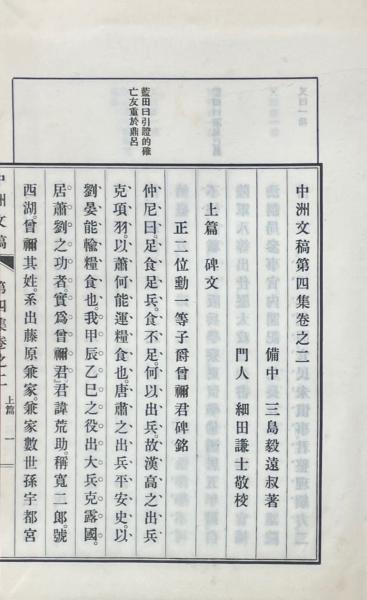 中洲文稿第四集卷之二
備中 三島毅遠叔著
門人 細田謙士敬校
上篇 碑文
正二位勳一等子爵曾禰君碑銘
仲尼曰。足食足兵。食不足。何以出兵。故漢高之出兵
克項羽。以蕭何能運糧食也。唐肅之出兵平安史。以
劉晏能輸糧食也。我甲辰乙巳之役出大兵克露國。
居蕭劉之功者。實爲曾禰君。君諱荒助。稱寬二郎。號
西湖。曾禰其姓。系出藤原兼家。兼家數世孫宇都宮
藍田曰引證的確
亡友重於鼎呂
中洲文稿 第四集卷之二 上篇 一